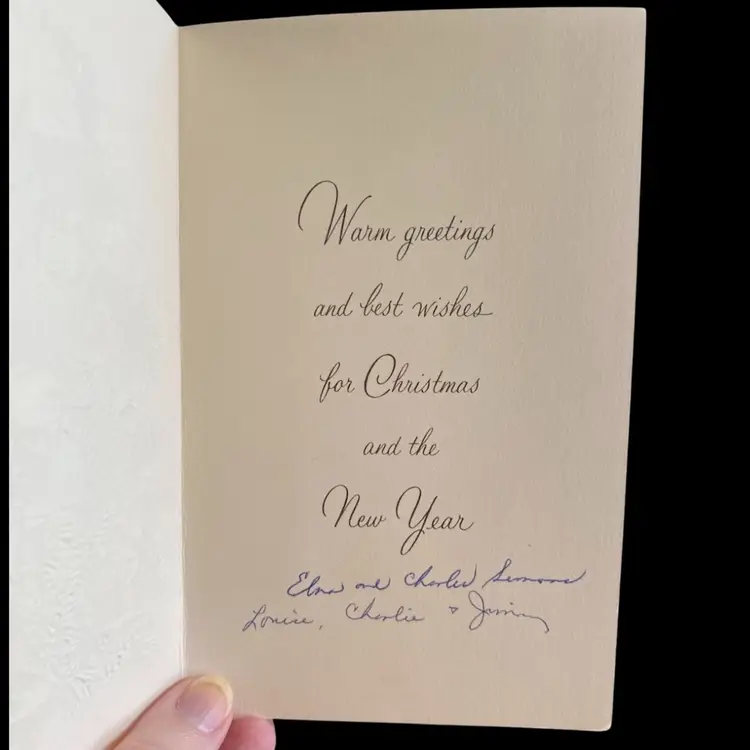 Warm greetings
and best wishes
for Christmas
and the
New Year
Elna and Charles Simons
Louise, Charlie & Jimmy